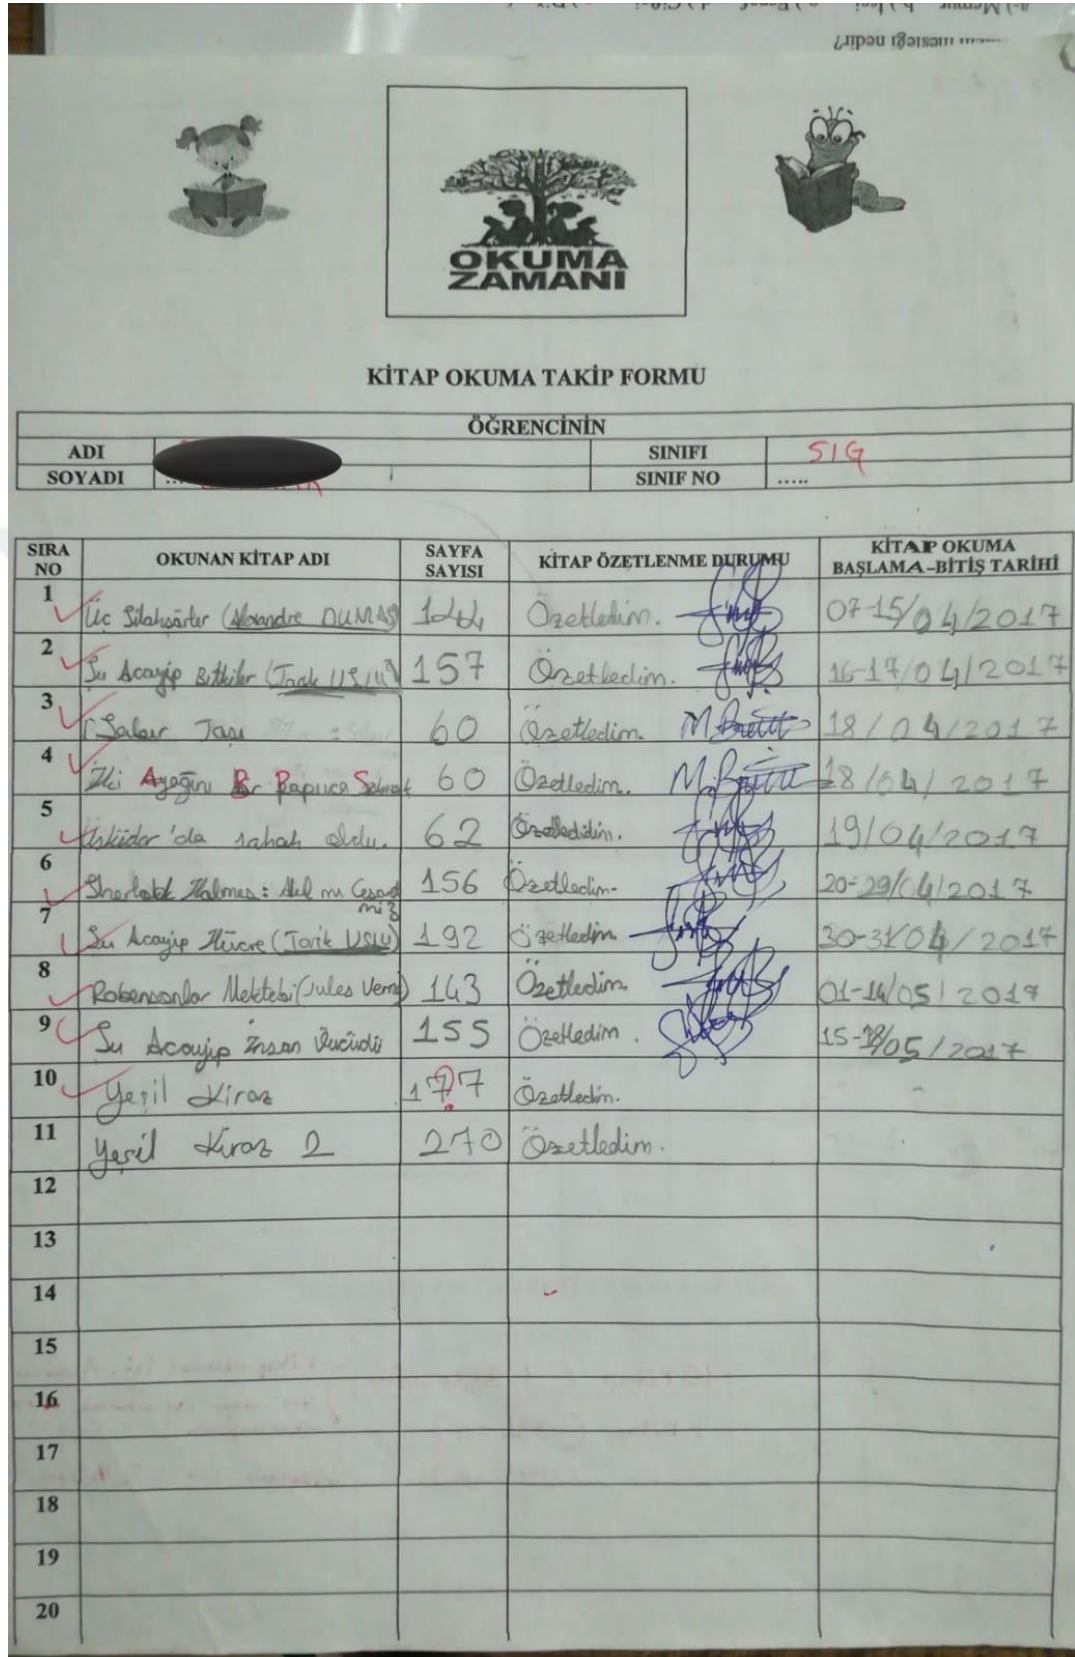 mesleği nedir?
OKUMA
ZAMANI
KİTAP OKUMA TAKİP FORMU
ÖĞRENCİNİN
ADI SINIFI 5/G
SOYADI ... SINIF NO .....
SIRA NO OKUNAN KİTAP ADI SAYFA SAYISI KİTAP ÖZETLENME DURUMU KİTAP OKUMA BAŞLAMA-BİTİŞ TARİHİ
1 Üç Silahşörler (Alexandre DUMAS) 144 Özetledim. 07-15/04/2017
2 Şu Acayip Bitkiler (Tarık USLU) 157 Özetledim. 16-17/04/2017
3 Sabır Taşı 60 Özetledim. 18/04/2017
4 İki Ayağını Bir Papuca Sokmak 60 Özetledim. 18/04/2017
5 Üsküdar'da sabah oldu. 62 19/04/2017
6 Sherlock Holmes: Akıl mı Cesaret mi? 156 Özetledim. 20-29/04/2017
7 Şu Acayip Hücre (Tarık USLU) 192 Özetledim 30-31/04/2017
8 Robensonlar Mektebi (Jules Verne) 143 Özetledim. 01-14/05/2017
9 Şu Acayip İnsan Vücudü 155 Özetledim. 15-18/05/2017
10 Yeşil Kiraz 177 Özetledim.
11 Yeşil Kiraz 2 270 Özetledim.
12
13
14
15
16
17
18
19
20